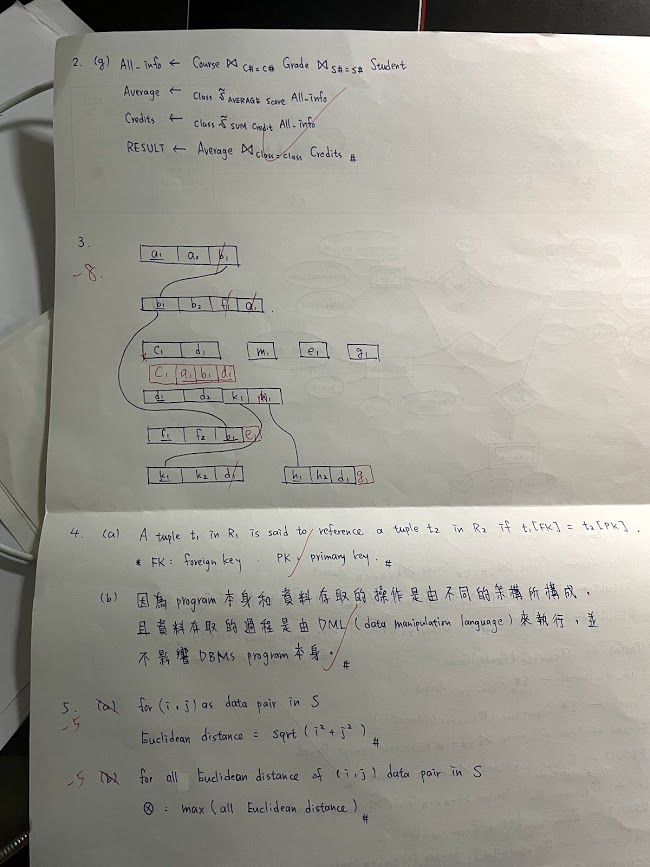 2. (g) All_info ← Course ⋈ C#=C# Grade ⋈ S#=S# Student
Average ← Class ℱ AVERAGE Score All_info
Credits ← Class ℱ SUM Credit All_info
RESULT ← Average ⋈ class=class Credits #
3.
-8.
a1 a2 b1
b1 b2 f1 d1
C1 d1 m1 e1 g1
C1 a1 b1 d1
d1 d2 k1
f1 f2 b1 e1
k1 k2 d1 h1 h2 d1 g1
4. (a) A tuple t1 in R1 is said to reference a tuple t2 in R2 if t1[FK] = t2[PK].
* FK: foreign key. PK, primary key. #
(b) 因為 program 本身和資料存取的操作是由不同的架構所構成、
且資料存取的過程是由 DML (data manipulation language) 來執行，並
不影響 DBMS program 本身。 #
5. (a) for (i, j) as data pair in S
-5
Euclidean distance = sqrt (i² + j²) #
-5 (b) for all Euclidean distance of (i, j) data pair in S
⊗ = max (all Euclidean distance) #